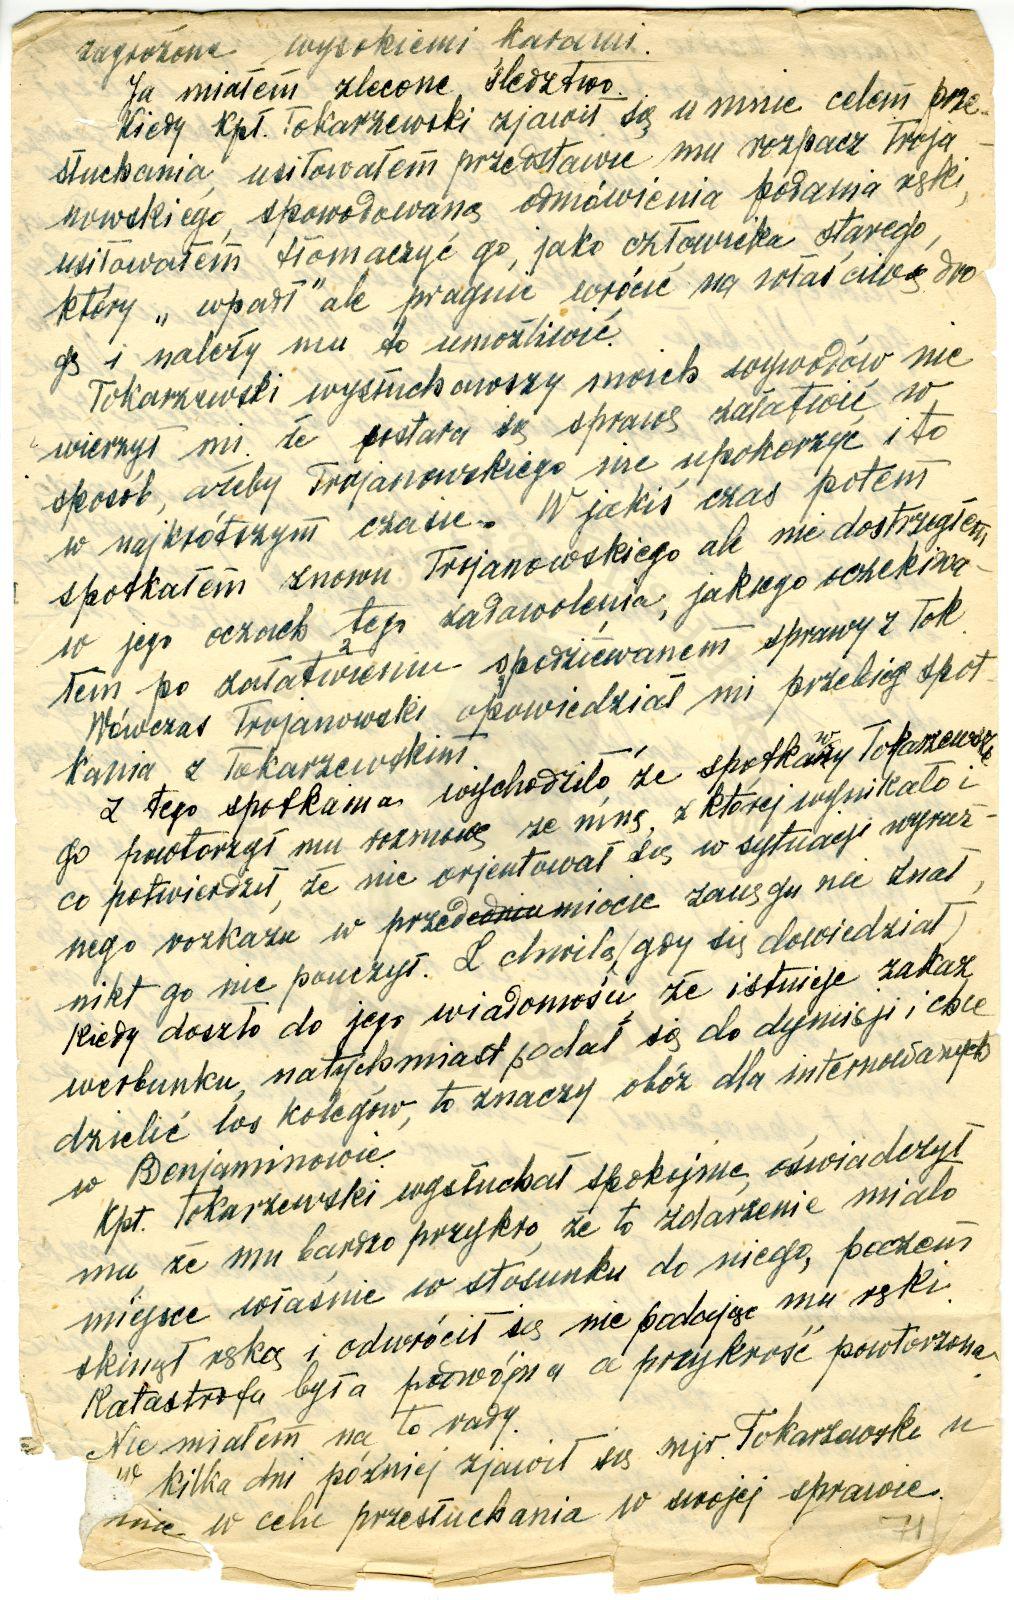 zagrożone wysokiemi karami.
Ja miałem zlecone śledztwo.
Kiedy kpt. Tokarzewski zjawił się u mnie celem prze-
słuchania, usiłowałem przedstawić mu rozpacz Troja-
nowskiego, spowodowaną odmówienia podania ręki,
usiłowałem tłomaczyć go, jako człowieka starego,
który „wpadł" ale pragnie wrócić na właściwą dro
gę i należy mu to umożliwić.
Tokarzewski wysłuchawszy moich wywodów nie
wierzył mi. że postara się sprawę załatwić w
sposób, ażeby Trojanowskiego nie upokorzyć i to
w najkrótszym czasie. W jakiś czas potem
spotkałem znowu Trojanowskiego ale nie dostrzegłem
w jego oczach tego zadowolenia, jakiego oczekiwa-
łem po załatwieniu spodziewanem sprawy z Tok.
Wówczas Trojanowski opowiedział mi przebieg spot-
kania z Tokarzewskim.
Z tego spotkania wychodziło że spotkawszy Tokarzewskie
go powtórzył mu rozmowę ze mną, z której wynikało i
co potwierdził, że nie orjentował się w sytuacji wyraź-
nego rozkazu w przedmiocie zaciągu nie znał,
nikt go nie pouczył. Z chwilą (gdy się dowiedział)
kiedy doszło do jego wiadomości, że istnieje zakaz
werbunku, natychmiast podał się do dymisji i chce
dzielić los kolegów, to znaczy obóz dla internowanych
w Benjaminowie.
Kpt. Tokarzewski wysłuchał spokojnie, oświadczył
mu, że mu bardzo przykro, że to zdarzenie miało
miejsce właśnie w stosunku do niego, poczem
skinął ręką i odwrócił się nie podając mu ręki.
Katastrofa była podwójna a przykrość powtórzona.
Nie miałem na to rady.
W kilka dni później zjawił się mjr. Tokarzewski u
mnie w celu przesłuchania w swojej sprawie.
71